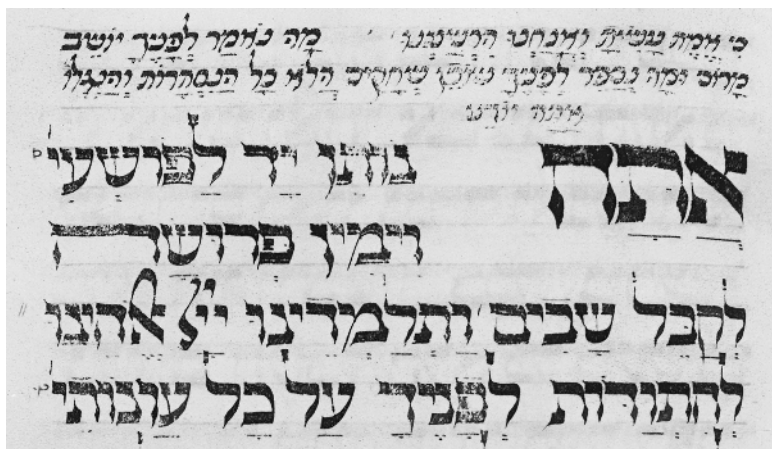 כי אמת עשית ואנחנו הרשענו מה נאמר לפניך יושב
מרום ומה נספר לפניך שוכן שחקים הלא כל הנסתרות והנגלו
אתה יודע
אתה נותן יד לפושעי
וימין פרושה
לקבל שבים ותלמדינו ייי אלהינו
להתודות לפניך על כל עונותי